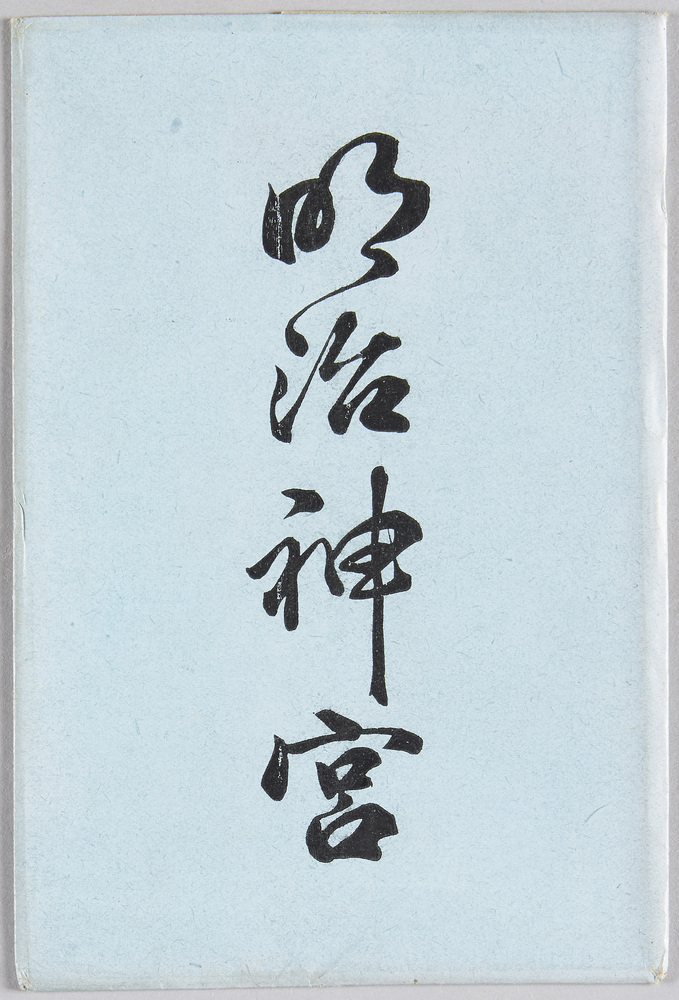 明治神宮